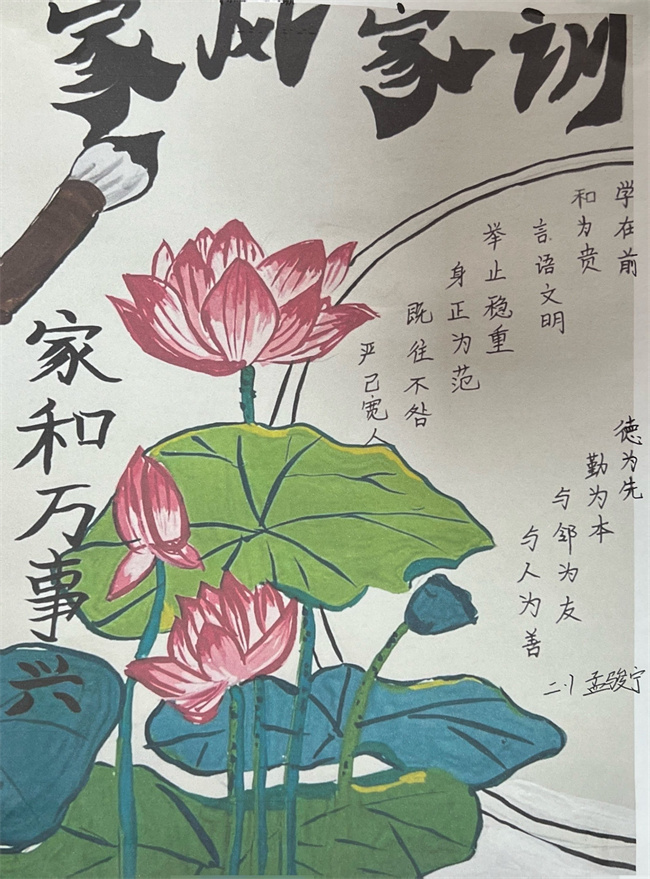 家风家训
学在前
和为贵
言语文明
举止稳重
身正为范
既往不咎
严己宽人
德为先
勤为本
与邻为友
与人为善
家和万事兴
二、1 孟骏宁